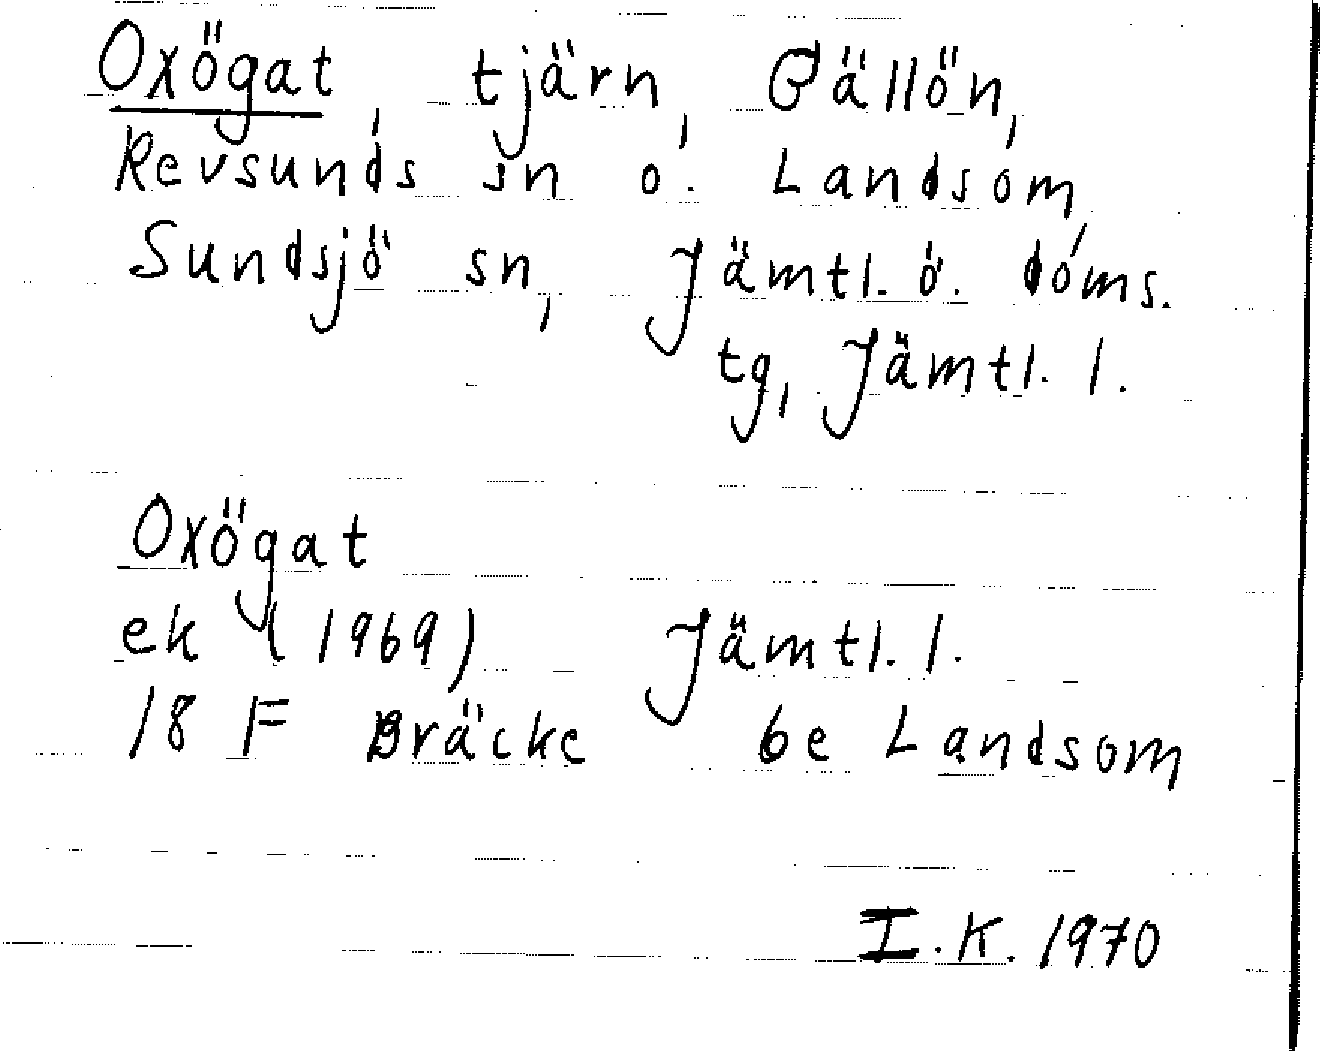 Oxögat, tjärn, Gällön,
Revsunds sn o. Landsom,
Sundsjö sn, Jämtl. ö. doms.
tg, Jämtl. l.
Oxögat
ek (1969) Jämtl. l.
18 F Bräcke be Landsom
I.K. 1970